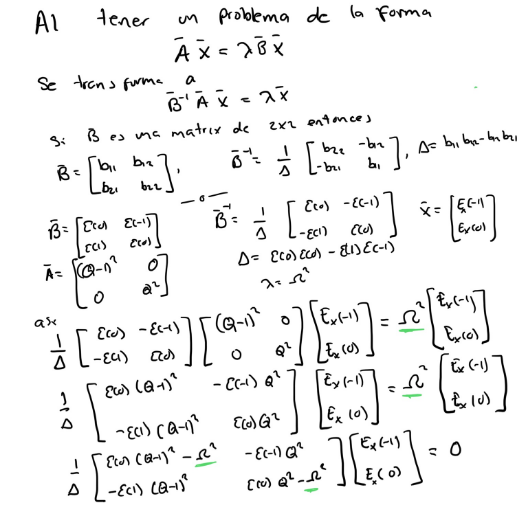 Al tener un problema de la forma
Ā x̄ = λ B̄ x̄
Se transforma a
B̄⁻¹ Ā x̄ = λ x̄
si B es una matrix de 2x2 entonces
B̄ = [b₁₁ b₁₂; b₂₁ b₂₂], B̄⁻¹ = 1/Δ [b₂₂ -b₁₂; -b₂₁ b₁], Δ = b₁₁ b₂₂ - b₁₂ b₂₁
—o—
B̄ = [ε(0) ε(-1); ε(1) ε(0)] B̄⁻¹ = 1/Δ [ε(0) -ε(-1); -ε(1) ε(0)] x̄ = [Eₓ(-1); Eₓ(0)]
Δ = ε(0) ε(0) - ε(1) ε(-1)
Ā = [(Q-1)² 0; 0 Q²] λ = Ω²
así
1/Δ [ε(0) -ε(-1); -ε(1) ε(0)] [(Q-1)² 0; 0 Q²] [Eₓ(-1); Eₓ(0)] = Ω² [Eₓ(-1); Eₓ(0)]
1/Δ [ε(0) (Q-1)² -ε(-1) Q²; -ε(1) (Q-1)² ε(0) Q²] [Eₓ(-1); Eₓ(0)] = Ω² [Eₓ(-1); Eₓ(0)]
1/Δ [ε(0) (Q-1)² - Ω² -ε(-1) Q²; -ε(1) (Q-1)² ε(0) Q² - Ω²] [Eₓ(-1); Eₓ(0)] = 0